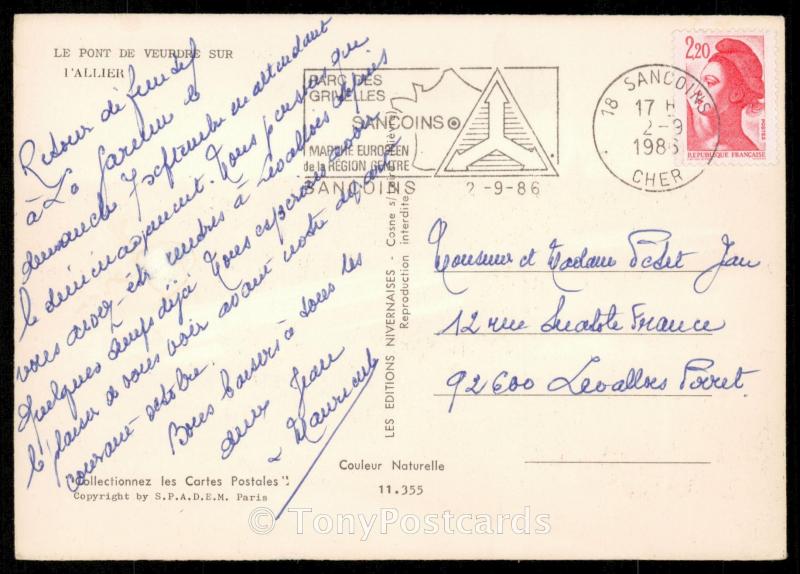 LE PONT DE VEURDRE SUR
l'ALLIER
Retour définitif
à La
dimanche 7 septembre en attendant
le déménagement. Nous pensons que
vous avez êtes rendus à Levallois depuis
Quelques temps déjà. Nous espérons avoir
le plaisir de vous voir avant notre départ
courant octobre.
Bons baisers à tous les
deux Jean
PARC DES
GRIVELLES
SANCOINS
MARCHE EUROPEEN
de la RÉGION CENTRE
SANCOINS 2-9-86
18 SANCOINS
17 H
2-9
1986
CHER
2,20
POSTES
REPUBLIQUE FRANÇAISE
LES EDITIONS NIVERNAISES - Cosne s/
Reproduction interdite
Monsieur et Madame Jean
12 rue Anatole France
92600 Levallois Perret.
"Collectionnez les Cartes Postales"
Copyright by S.P.A.D.E.M. Paris
Couleur Naturelle
11.355
© TonyPostcards